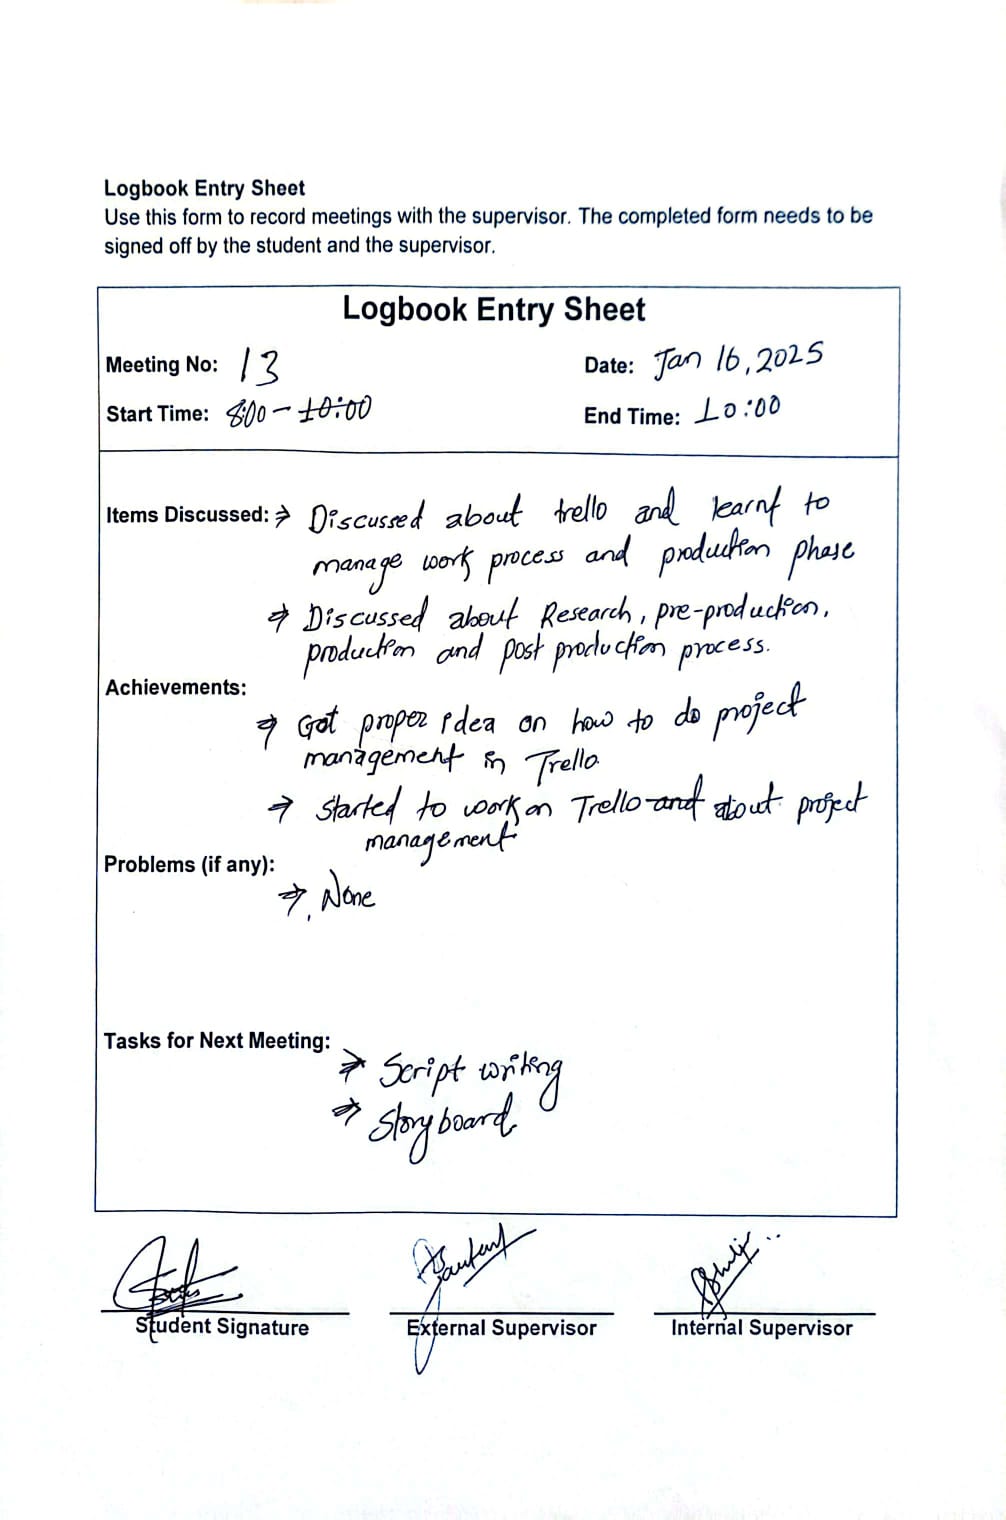 Logbook Entry Sheet
Use this form to record meetings with the supervisor. The completed form needs to be
signed off by the student and the supervisor.
Logbook Entry Sheet
Meeting No: 13 Date: Jan 16, 2025
Start Time: 8:00 - 10:00 End Time: 10:00
Items Discussed: ⇒ Discussed about trello and learnt to
manage work process and production phase
⇒ Discussed about Research, pre-production,
production and post production process.
Achievements:
⇒ Got proper idea on how to do project
management in Trello.
→ Started to work on Trello and about project
management
Problems (if any):
⇒ None
Tasks for Next Meeting:
⇒ Script writing
⇒ Storyboard
Student Signature External Supervisor Internal Supervisor